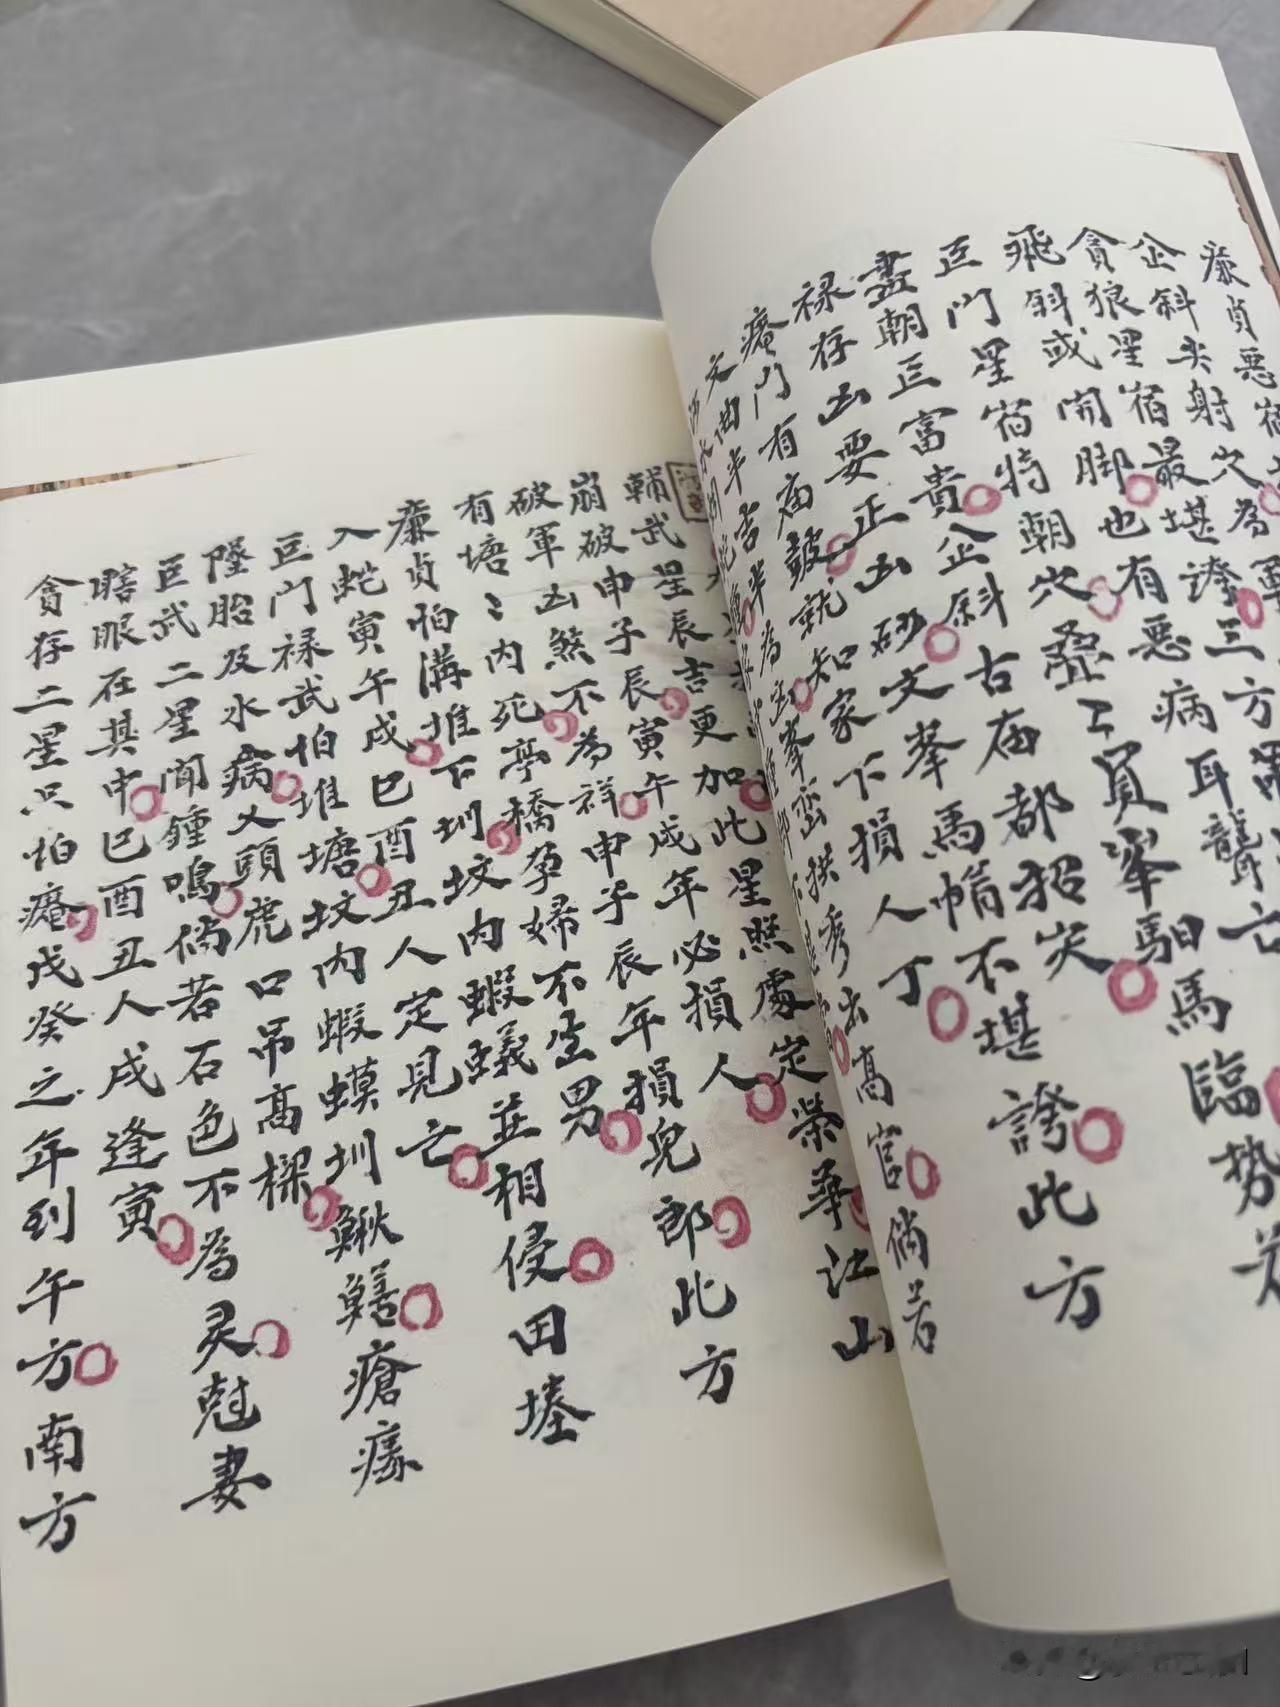 廉貞惡宿
企斜尖射穴為軍
貪狼星宿最堪誇三方
飛斜或開脚也有惡病耳聾亡
巨門星宿特朝穴疊〻員峯馹馬臨势若
盡朝正富貴企斜古庙都招災
禄存山要正山砂文峯馬帽不堪誇此方
癀門有庙鼓就知家下損人丁
文曲半吉半為峯峦拱秀出高官倘若
輔武星辰吉更加此星照處定榮華江山
崩破申子辰寅午戌年必損人
破軍凶煞不為祥申子辰年損兒郎此方
有塘〻内死亭橋孕婦不生男
廉貞怕溝堆下圳坟内蝦蟻並相侵田塟
入蛇寅午戌巳酉丑人定見亡
巨門禄武怕堆塘坟内蝦蟆圳鰍鱔瘡癀
墜胎及水病又頭虎口吊高樑
巨武二星闻鍾鳴倘若石色不為灵尅妻
瞎眼在其中巳酉丑人戌逢寅
貪存二星只怕癀戊癸之年到午方南方